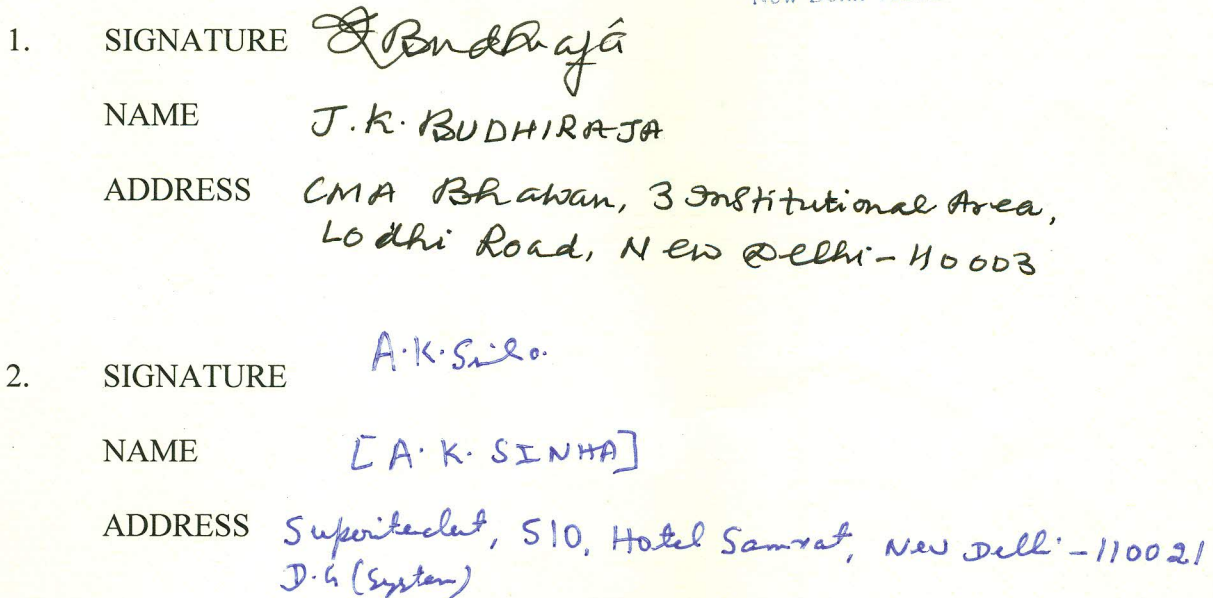 1. SIGNATURE JKBudhraja
NAME J.K. BUDHIRAJA
ADDRESS CMA Bhawan, 3 Institutional Area,
Lodhi Road, New Delhi-110003
2. SIGNATURE A.K.Sinha
NAME [A. K. SINHA]
ADDRESS Superitedet, 510, Hotel Samrat, New Delhi-110021
D.G (System)